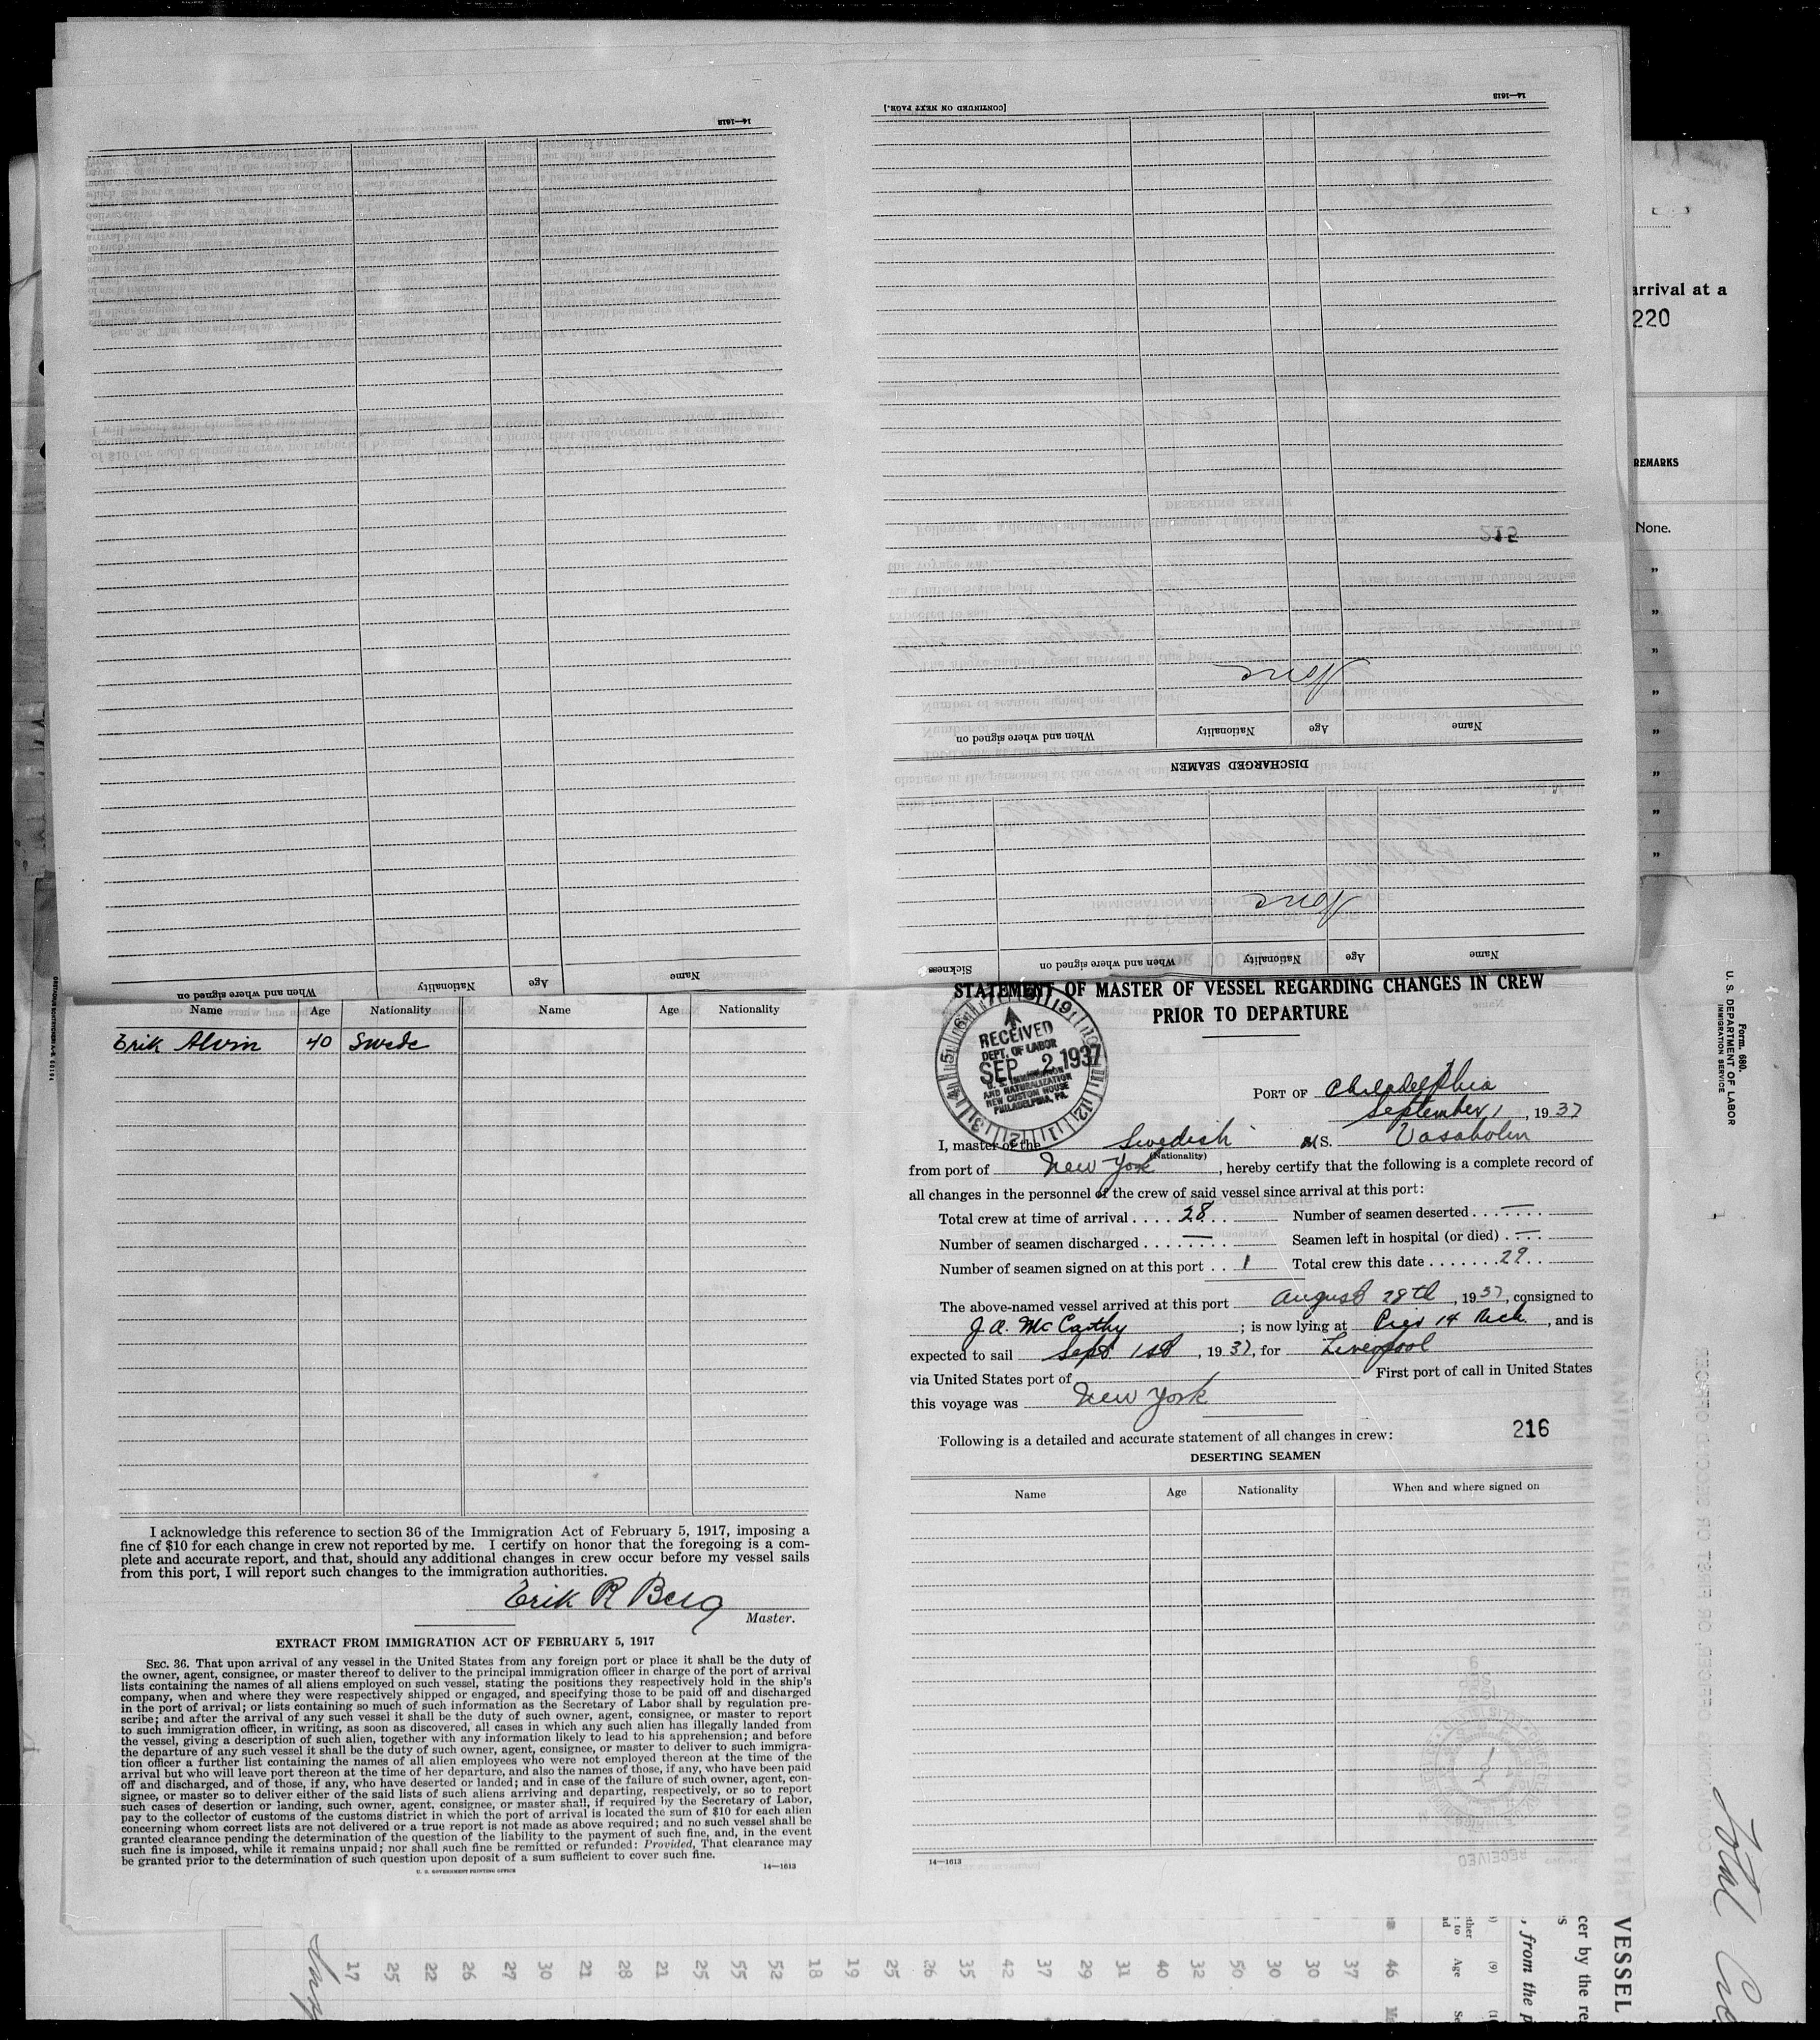 14—1613
[CONTINUED ON NEXT PAGE.]
14—1613
None
Name Age Nationality When and where signed on
DISCHARGED SEAMEN
None
Name Age Nationality When and where signed on Sickness
Name Age Nationality When and where signed on
arrival at a
220
REMARKS
None.
"
"
"
"
"
"
"
"
Name Age Nationality Name Age Nationality
Erik Alvin 40 Swede
I acknowledge this reference to section 36 of the Immigration Act of February 5, 1917, imposing a
fine of $10 for each change in crew not reported by me. I certify on honor that the foregoing is a com-
plete and accurate report, and that, should any additional changes in crew occur before my vessel sails
from this port, I will report such changes to the immigration authorities.
Erik R Berg
Master.
EXTRACT FROM IMMIGRATION ACT OF FEBRUARY 5, 1917
SEC. 36. That upon arrival of any vessel in the United States from any foreign port or place it shall be the duty of
the owner, agent, consignee, or master thereof to deliver to the principal immigration officer in charge of the port of arrival
lists containing the names of all aliens employed on such vessel, stating the positions they respectively hold in the ship's
company, when and where they were respectively shipped or engaged, and specifying those to be paid off and discharged
in the port of arrival; or lists containing so much of such information as the Secretary of Labor shall by regulation pre-
scribe; and after the arrival of any such vessel it shall be the duty of such owner, agent, consignee, or master to report
to such immigration officer, in writing, as soon as discovered, all cases in which any such alien has illegally landed from
the vessel, giving a description of such alien, together with any information likely to lead to his apprehension; and before
the departure of any such vessel it shall be the duty of such owner, agent, consignee, or master to deliver to such immigra-
tion officer a further list containing the names of all alien employees who were not employed thereon at the time of the
arrival but who will leave port thereon at the time of her departure, and also the names of those, if any, who have been paid
off and discharged, and of those, if any, who have deserted or landed; and in case of the failure of such owner, agent, con-
signee, or master so to deliver either of the said lists of such aliens arriving and departing, respectively, or so to report
such cases of desertion or landing, such owner, agent, consignee, or master shall, if required by the Secretary of Labor,
pay to the collector of customs of the customs district in which the port of arrival is located the sum of $10 for each alien
concerning whom correct lists are not delivered or a true report is not made as above required; and no such vessel shall be
granted clearance pending the determination of the question of the liability to the payment of such fine, and, in the event
such fine is imposed, while it remains unpaid; nor shall such fine be remitted or refunded: Provided, That clearance may
be granted prior to the determination of such question upon deposit of a sum sufficient to cover such fine.
U. S. GOVERNMENT PRINTING OFFICE 14—1613
STATEMENT OF MASTER OF VESSEL REGARDING CHANGES IN CREW
PRIOR TO DEPARTURE
RECEIVED
DEPT. OF LABOR
SEP 2 1937
U. S. IMMIGRATION
AND NATURALIZATION
NEW CUSTOM HOUSE
PHILADELPHIA, PA.
PORT OF Philadelphia
September 1, 1937
I, master of the Swedish MS. Vasaholm
(Nationality)
from port of New York, hereby certify that the following is a complete record of
all changes in the personnel of the crew of said vessel since arrival at this port:
Total crew at time of arrival .... 28 .. Number of seamen deserted ... — ...
Number of seamen discharged ... — ... Seamen left in hospital (or died) . — ..
Number of seamen signed on at this port .. 1 Total crew this date ....... 29 ..
The above-named vessel arrived at this port August 28th, 1937, consigned to
J. A. McCarthy; is now lying at Pier 14 Rich., and is
expected to sail Sept 1st, 1937, for Liverpool
via United States port of First port of call in United States
this voyage was New York
Following is a detailed and accurate statement of all changes in crew: 216
DESERTING SEAMEN
Name Age Nationality When and where signed on
14—1613
Form 680.
U. S. DEPARTMENT OF LABOR
IMMIGRATION SERVICE
Total
VESSEL
cer by the re
, from the p
(9)
Age
46
37
30
30
50
32
40
31
29
37
42
35
26
25
19
18
52
55
25
21
28
21
30
27
26
22
25
17